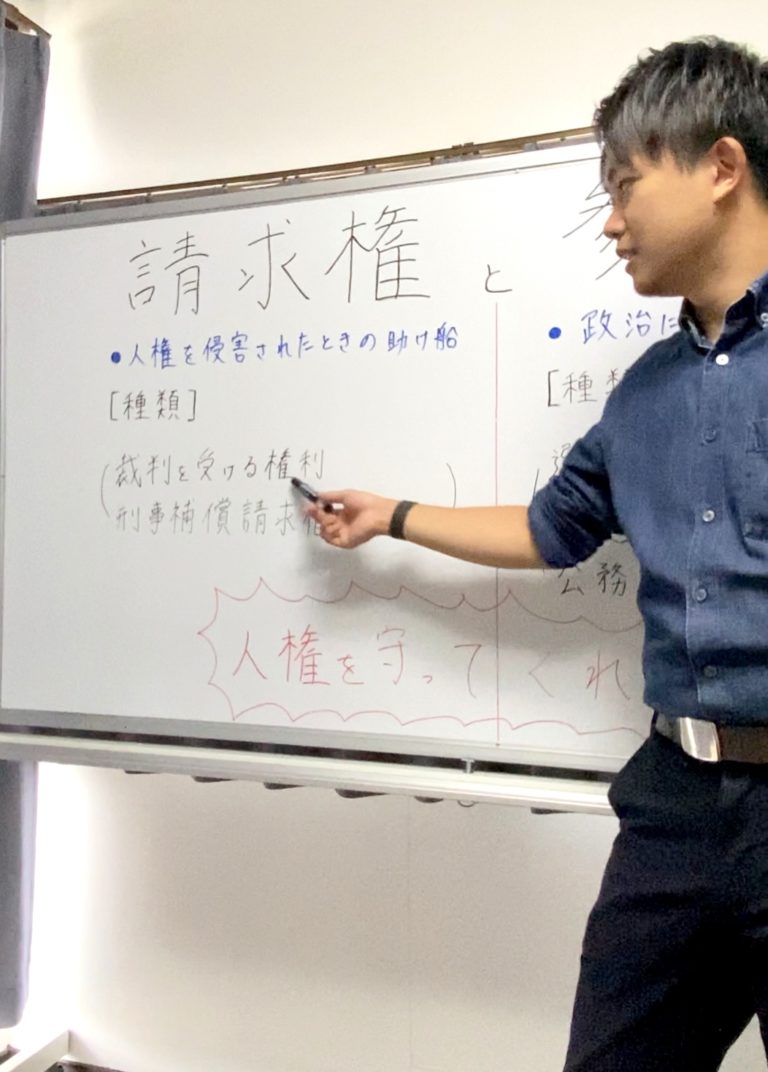 請求権と
●人権を侵害されたときの助け船
[種類]
(裁判を受ける権利
刑事補償請求権)
●政治に
[種類
公務
人権を守ってくれ